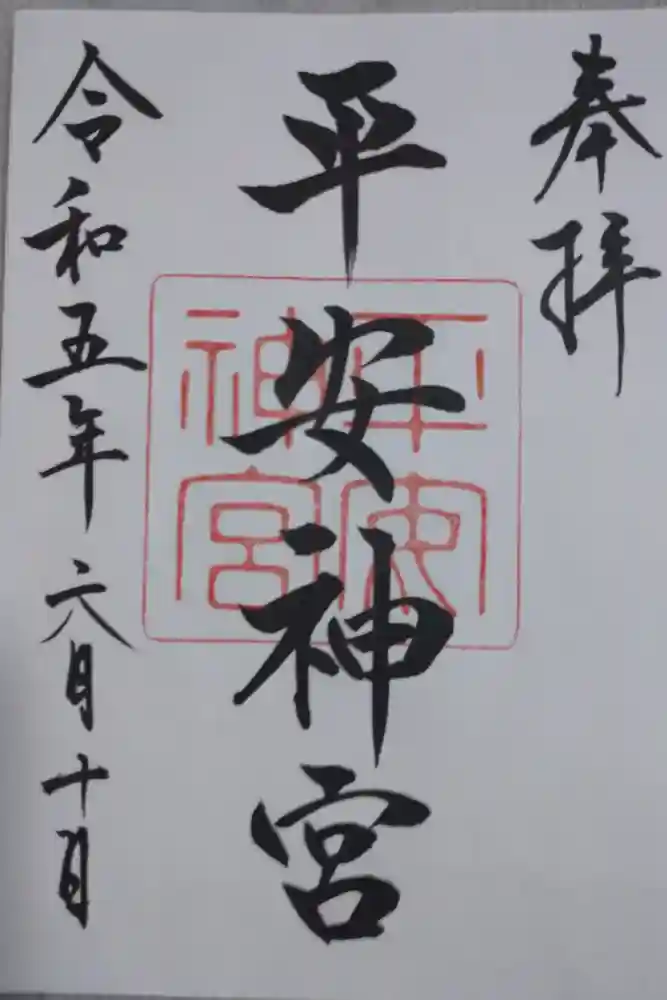 奉拝
平安神宮
平安神宮
令和五年六月十日